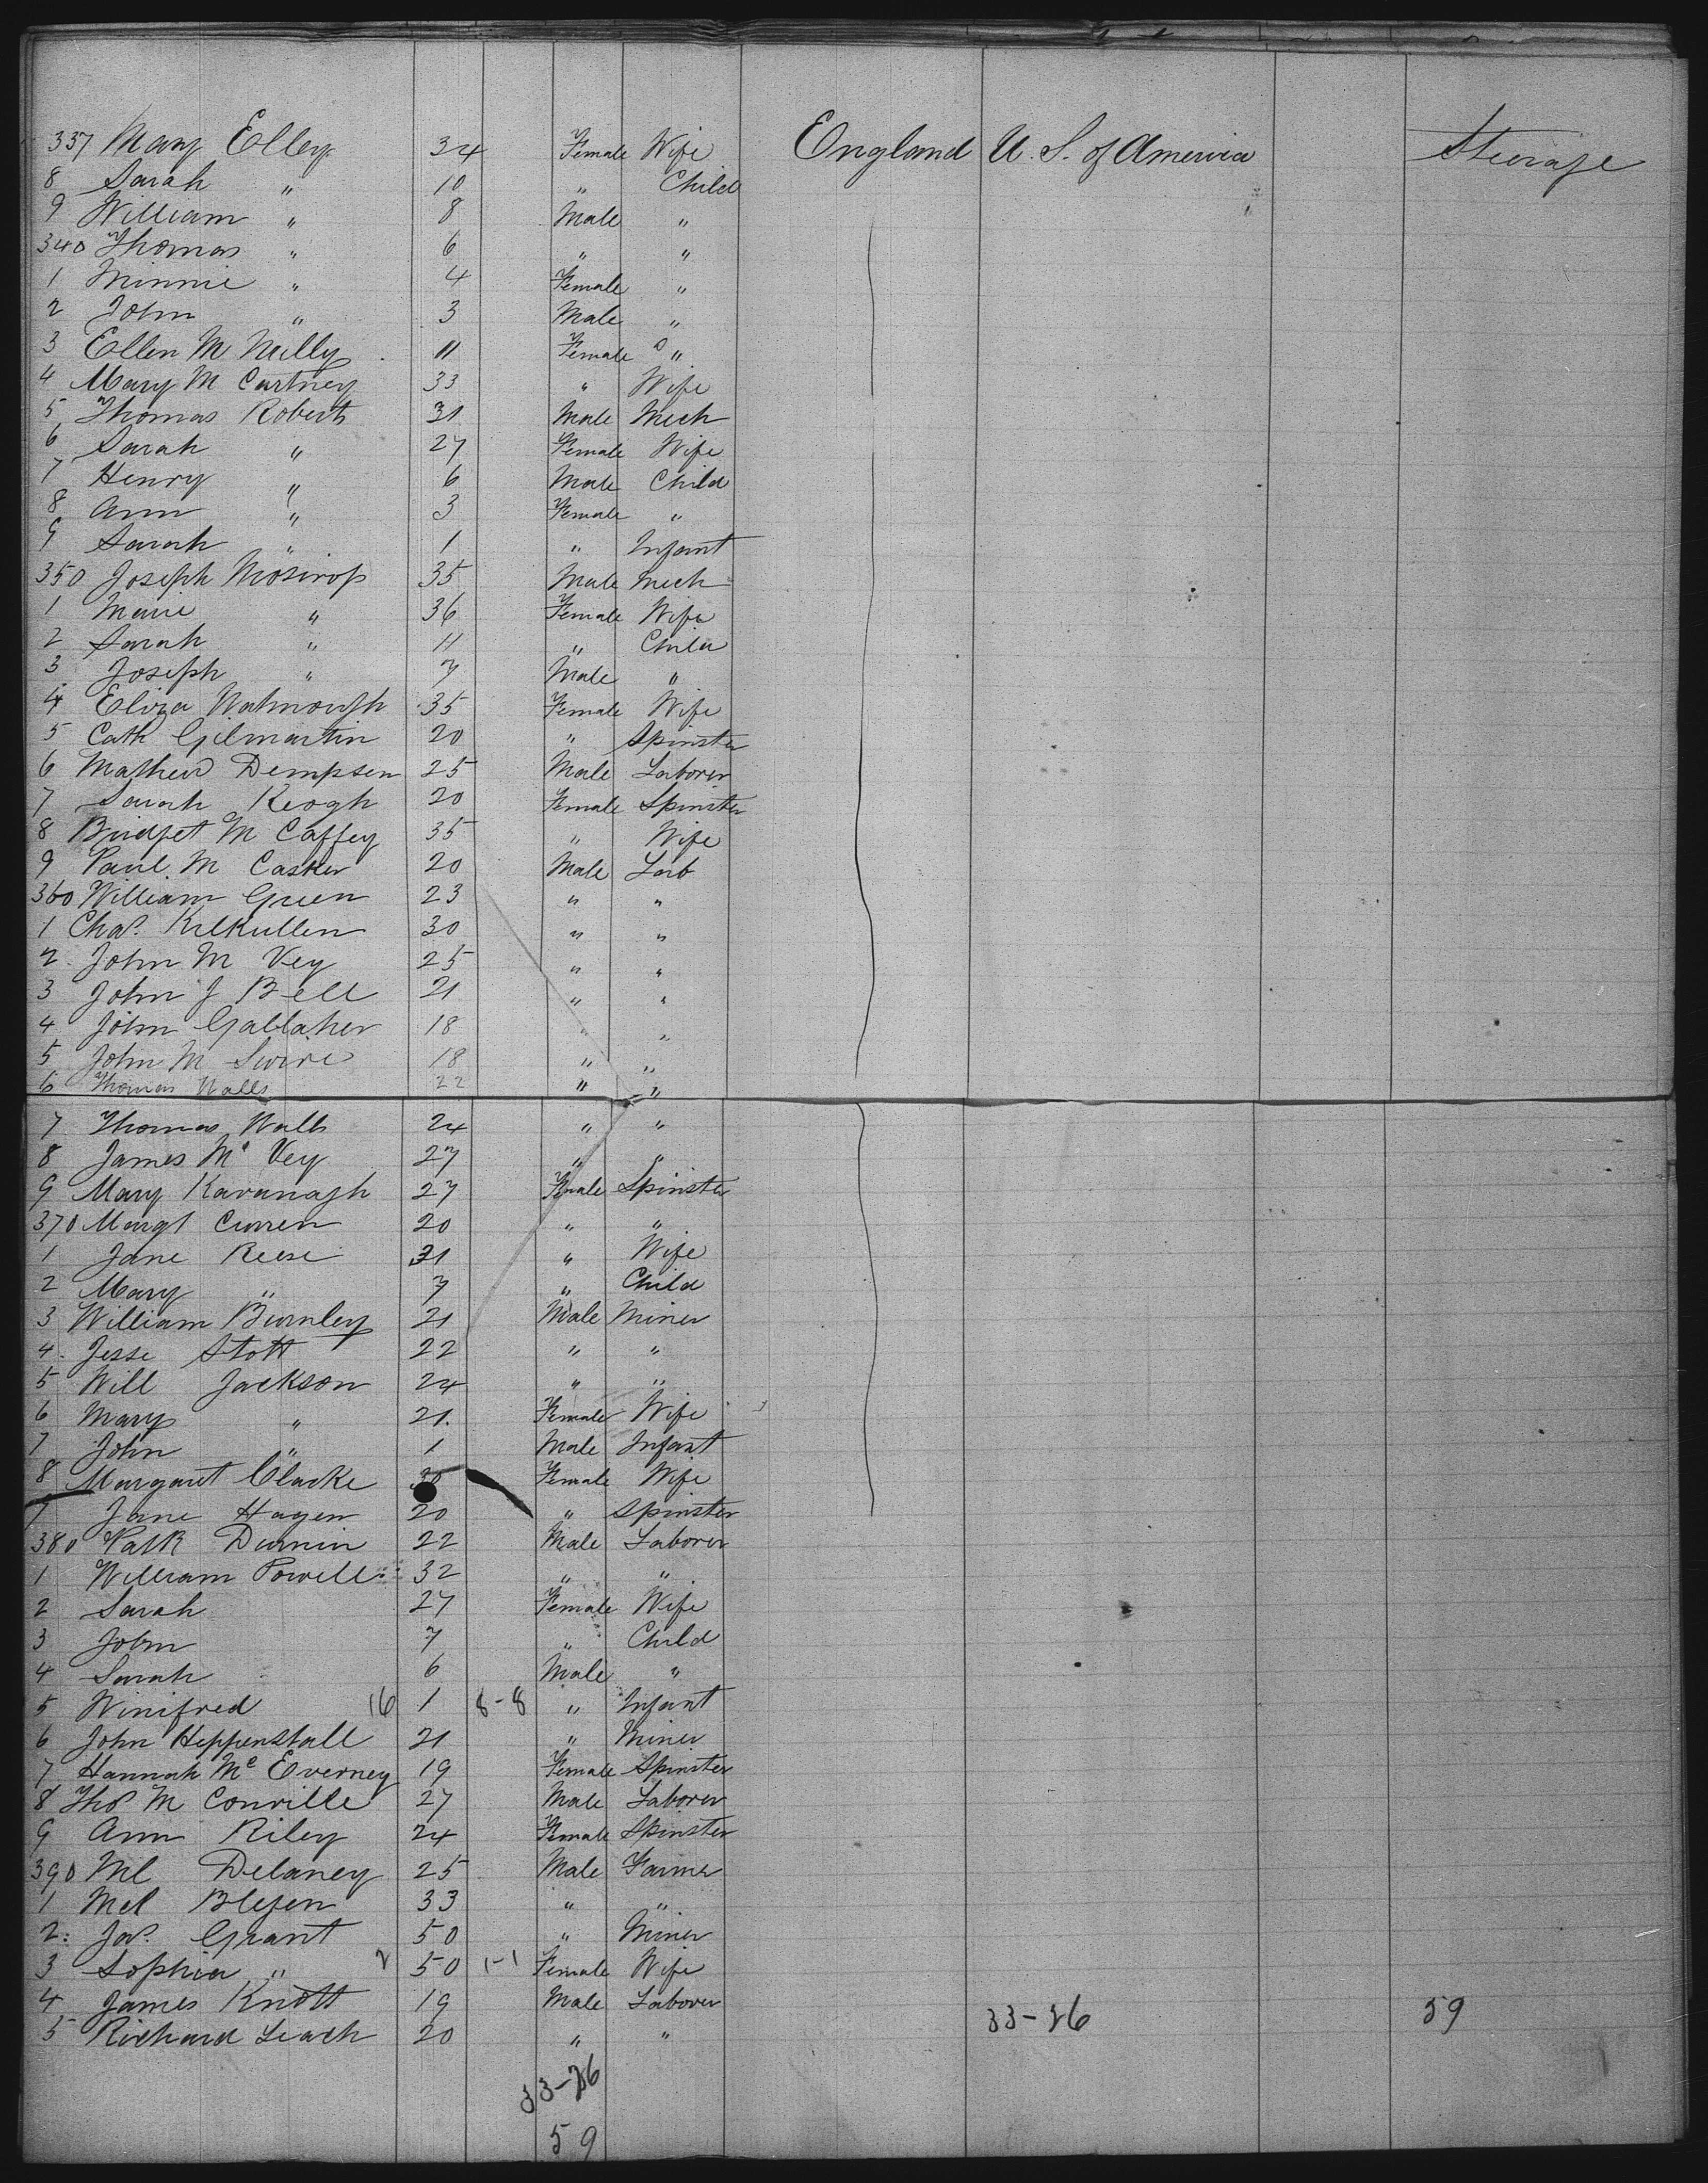 337 Mary Elley 34 Female Wife England U. S. of America Steerage
8 Sarah " 10 " Child
9 William " 8 Male "
340 Thomas " 6 " "
1 Minnie " 4 Female "
2 John " 3 Male "
3 Ellen M Nully 11 Female "
4 Mary M Cartney 33 " Wife
5 Thomas Roberts 31 Male Mech
6 Sarah " 27 Female Wife
7 Henry " 6 Male Child
8 Ann " 3 Female "
9 Sarah " 1 " Infant
350 Joseph Mosirop 35 Male Mech
1 Marie " 36 Female Wife
2 Sarah " 11 " Child
3 Joseph " 7 Male "
4 Eliza Watmough 35 Female Wife
5 Cath Gilmartin 20 " Spinster
6 Mathew Dempsen 25 Male Laborer
7 Sarah Keogh 20 Female Spinster
8 Bridget M Caffey 35 " Wife
9 Paul M Casker 20 Male Lab
360 William Green 23 " "
1 Chas. Kilkullen 30 " "
2 John M Vey 25 " "
3 John J Bell 21 " "
4 John Gallaher 18 " "
5 John M Swire 18 " "
6 Thomas Walls 22 " "
7 Thomas Walls 24 " "
8 James Mc Vey 27 " "
9 Mary Kavanagh 27 Female Spinster
370 Margt Curren 20 " "
1 Jane Reese 31 " Wife
2 Mary " 7 " Child
3 William Burnley 21 Male Miner
4 Jesse Stott 22 " "
5 Will Jackson 24 " "
6 Mary " 21 Female Wife
7 John " 1 Male Infant
8 Margaret Clarke 30 Female Wife
9 Jane Hagen 20 " Spinster
380 Patk Durnin 22 Male Laborer
1 William Powell 32 " "
2 Sarah 27 Female Wife
3 John 7 " Child
4 Sarah 6 Male "
5 Winifred 16 1 8-8 " Infant
6 John Heppenstall 21 " Miner
7 Hannah Mc Everney 19 Female Spinster
8 Thos M Conville 27 Male Laborer
9 Ann Riley 24 Female Spinster
390 Ml Delaney 25 Male Farmer
1 Mel Blejen 33 " "
2 Jas. Grant 50 " Miner
3 Sophia " 2 50 1-1 Female Wife
4 James Knott 19 Male Laborer 33-26 59
5 Richard Leach 20 " "
33-26
59